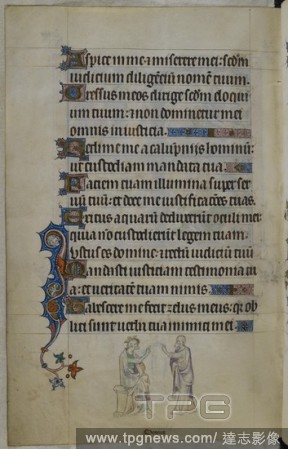 Aspice in me ⁊ miserere mei: scdm
iudicium diligētiū nomē tuum.
Gressus meos dirige scdm eloqui
um tuum: ⁊ non dominetur mei
omnis iniusticia.
Redime me a calupnijs hominū:
ut custodiam mandata tua.
Faciem tuam illumina super ser
uū tuū: et doce me iustificacōes tuas.
Exitus aquarū deduxerūt oculi mei:
quia nō custodierūt legem tuam.
Iustus es domine: ⁊ rectū iudiciū tuū
Mandasti iusticiam testimonia tu
a: et ueritatē tuam nimis.
Tabescere me fecit zelus meus: qr ob
liti sunt uerba tua inimici mei.
TPG
www.tpgnews.com / 達志影像